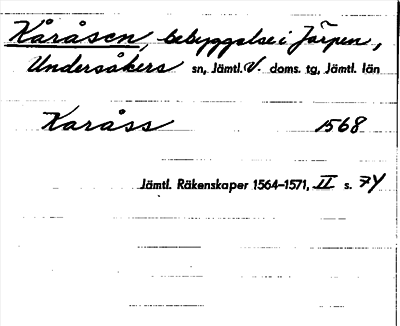 Kåråsen, bebyggelse i Järpen,
Undersåkers sn, Jämtl. V. doms. tg, Jämtl. län
Karåss 1568
Jämtl. Räkenskaper 1564–1571, II s. 74